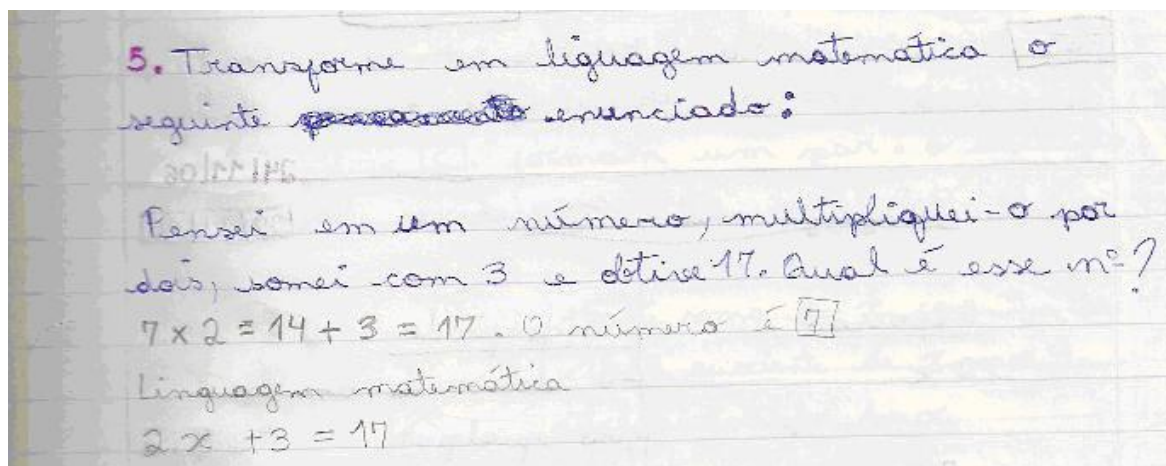 5. Transforme em liguagem matematica o
seguinte enunciado:
Pensei em um número, multipliquei-o por
dois, somei com 3 e obtive 17. Qual é esse nº?
7 x 2 = 14 + 3 = 17. O número é 7
Linguagem matemática
2x + 3 = 17